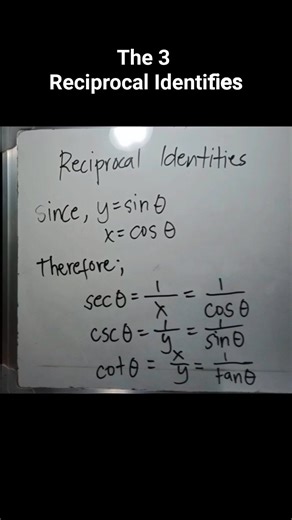 The 3
Reciprocal Identifies
Reciprocal Identities
Since, y=sinθ
x=cosθ
Therefore;
secθ = 1/x = 1/cosθ
cscθ = 1/y = 1/sinθ
cotθ = x/y = 1/tanθ